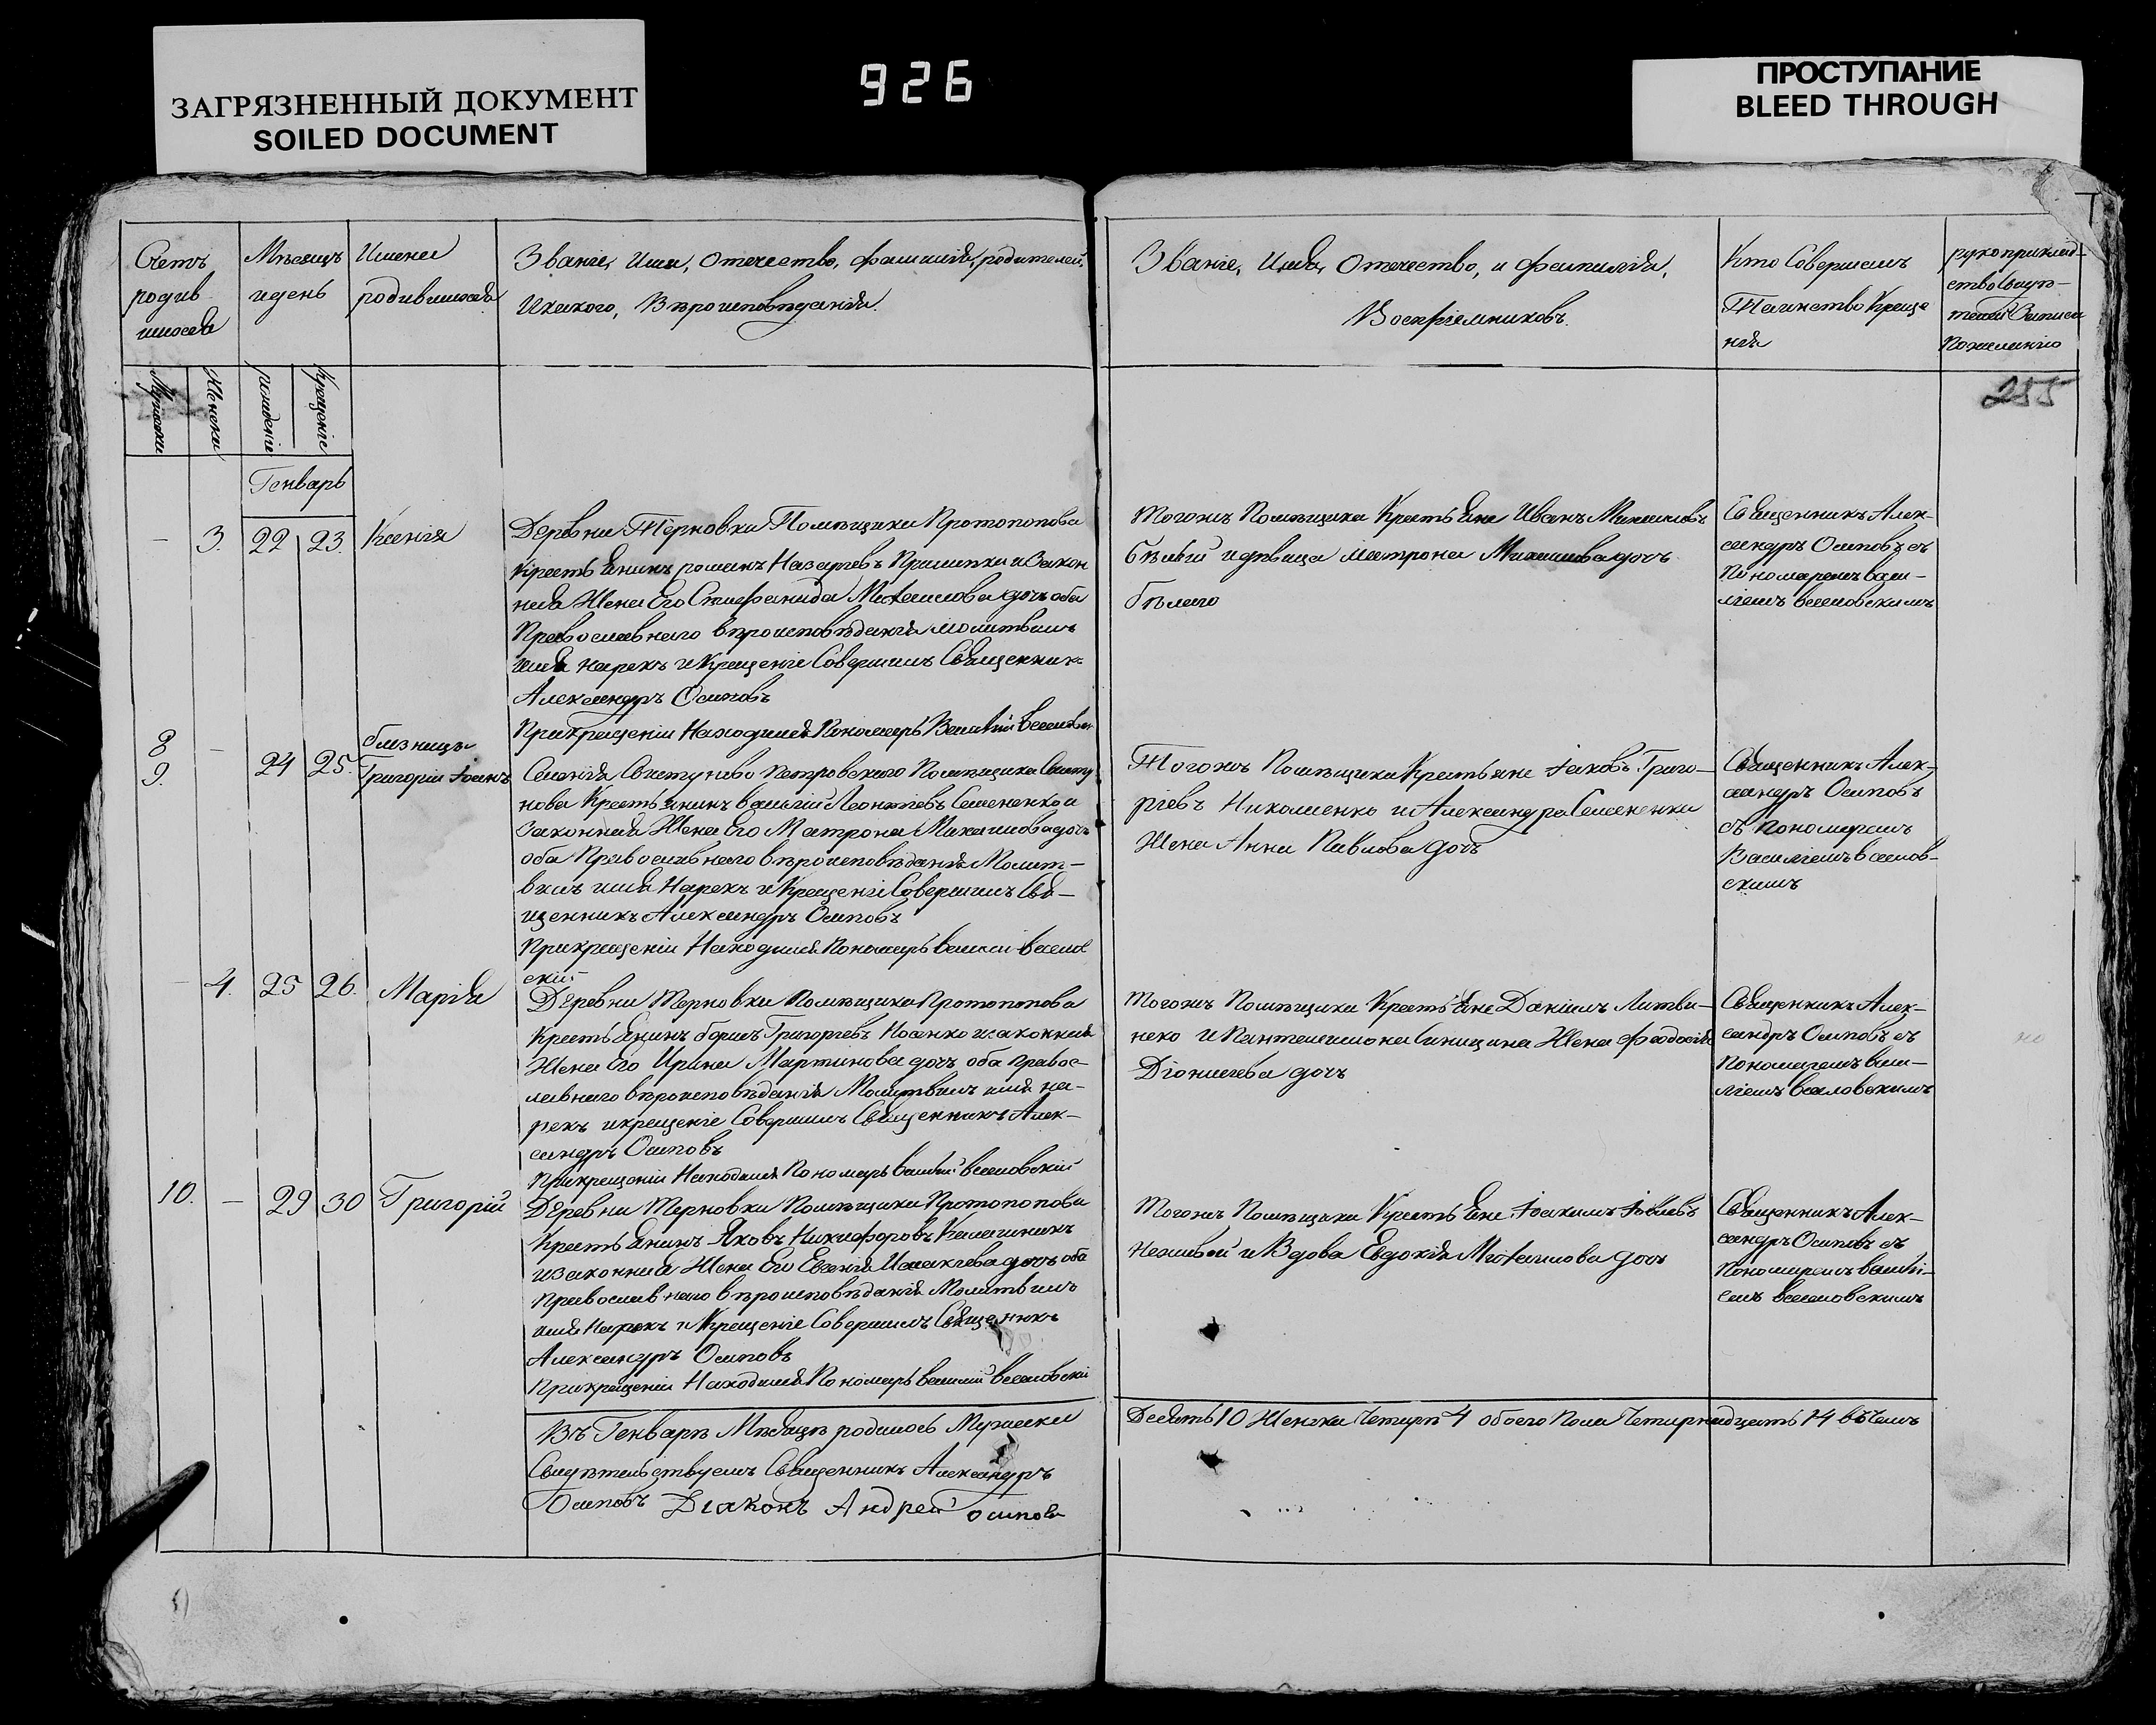 ЗАГРЯЗНЕННЫЙ ДОКУМЕНТ
SOILED DOCUMENT
926
ПРОСТУПАНИЕ
BLEED THROUGH
Счетъ
родив
шихся
Мѣсяцъ
и день
Имена
родившихся
Званіе, Имя, Отечество, фамилія, родителей,
И какого, Вѣроисповѣданія.
Званіе, Имя, Отечество, и фамилія,
Воспріемниковъ.
Кто Совершалъ
Таинство Креще
нія
рукоприклад-
ство
Записи
По желанію
Мужеска
Женска
рожденіе
Крещеніе
255
Генварь
— 3. 22 23. Ксенія
Деревни Терновки Помѣщика Протопопова
Крестьянинъ романъ Назарьевъ и Закон
ная Жена Его Стефанида Михаилова дочь оба
Православнаго вѣроисповѣданія молитвилъ
имя нарекъ и Крещеніе Совершилъ Священникъ
Александръ Осиповъ
При крещеніи Находился Пономарь Василій
Тогожъ Помѣщика Крестьяне Иванъ
Бѣлый и дѣвица Матрона Михаилова дочь
бѣлаго
Священникъ Алек-
сандръ Осиповъ съ
Пономаремъ Васи-
ліемъ веселовскимъ
8
9. — 24 25. близнцы
Григорій Іоаннъ
Селенія Свистунова Петровскаго Помѣщика Свисту
нова Крестьянинъ василій Леонтіевъ Семененко и
Законная Жена Его Матрона Михаилова дочь
оба Православнаго вѣроисповѣданія Молит-
вилъ имя Нарекъ и Крещеніе Совершилъ Свя-
щенникъ Александръ Осиповъ
При крещеніи Находился Пономарь василій весело
скій
Тогожъ Помѣщика Крестьяне Іаковъ Григо-
ріевъ Николаенко и Александра Семененка
Жена Анна Павлова дочь
Священникъ Алек-
сандръ Осиповъ
съ Пономаремъ
Василіемъ веселов-
скимъ
— 4. 25 26. Марія
Деревни Терновки Помѣщика Протопопова
Крестьянинъ борисъ Григорьевъ Носенко и законная
Жена Его Ирина Мартинова дочь оба Правос-
лавнаго вѣроисповѣданія Молитвилъ имя на-
рекъ и крещеніе Совершилъ Священникъ Алек-
сандръ Осиповъ
При крещеніи Находился Пономарь василій веселовскій
Тогожъ Помѣщика Крестьяне Даніилъ Литви-
ненко и Пантелеимона Синицина Жена Феодосія
Діонисіева дочь
Священникъ Алек-
сандръ Осиповъ съ
Пономаремъ васи-
ліемъ веселовскимъ
10. — 29 30 Григорій
Деревни Терновки Помѣщика Протопопова
Крестьянинъ Яковъ Никифоровъ Калашникъ
и законная Жена Его Евгенія Исаакіева дочь оба
Православнаго вѣроисповѣданія Молитвилъ
имя Нарекъ и Крещеніе Совершилъ Священникъ
Александръ Осиповъ
При крещеніи Находился Пономарь василій веселовскій
Тогожъ Помѣщика Крестьяне Іоакимъ Іовлевъ
Неживой и Вдова Евдокія Михаилова дочь
Священникъ Алек-
сандръ Осиповъ съ
Пономаремъ василі-
емъ веселовскимъ
Въ Генварѣ Мѣсяцѣ родилось Мужеска
Десять 10 Женска Четыри 4 обоего Пола Четырнадцать 14 в чемъ
Свидѣтельствуемъ Священникъ Александръ
Осиповъ Діаконъ Андрей Осиповъ